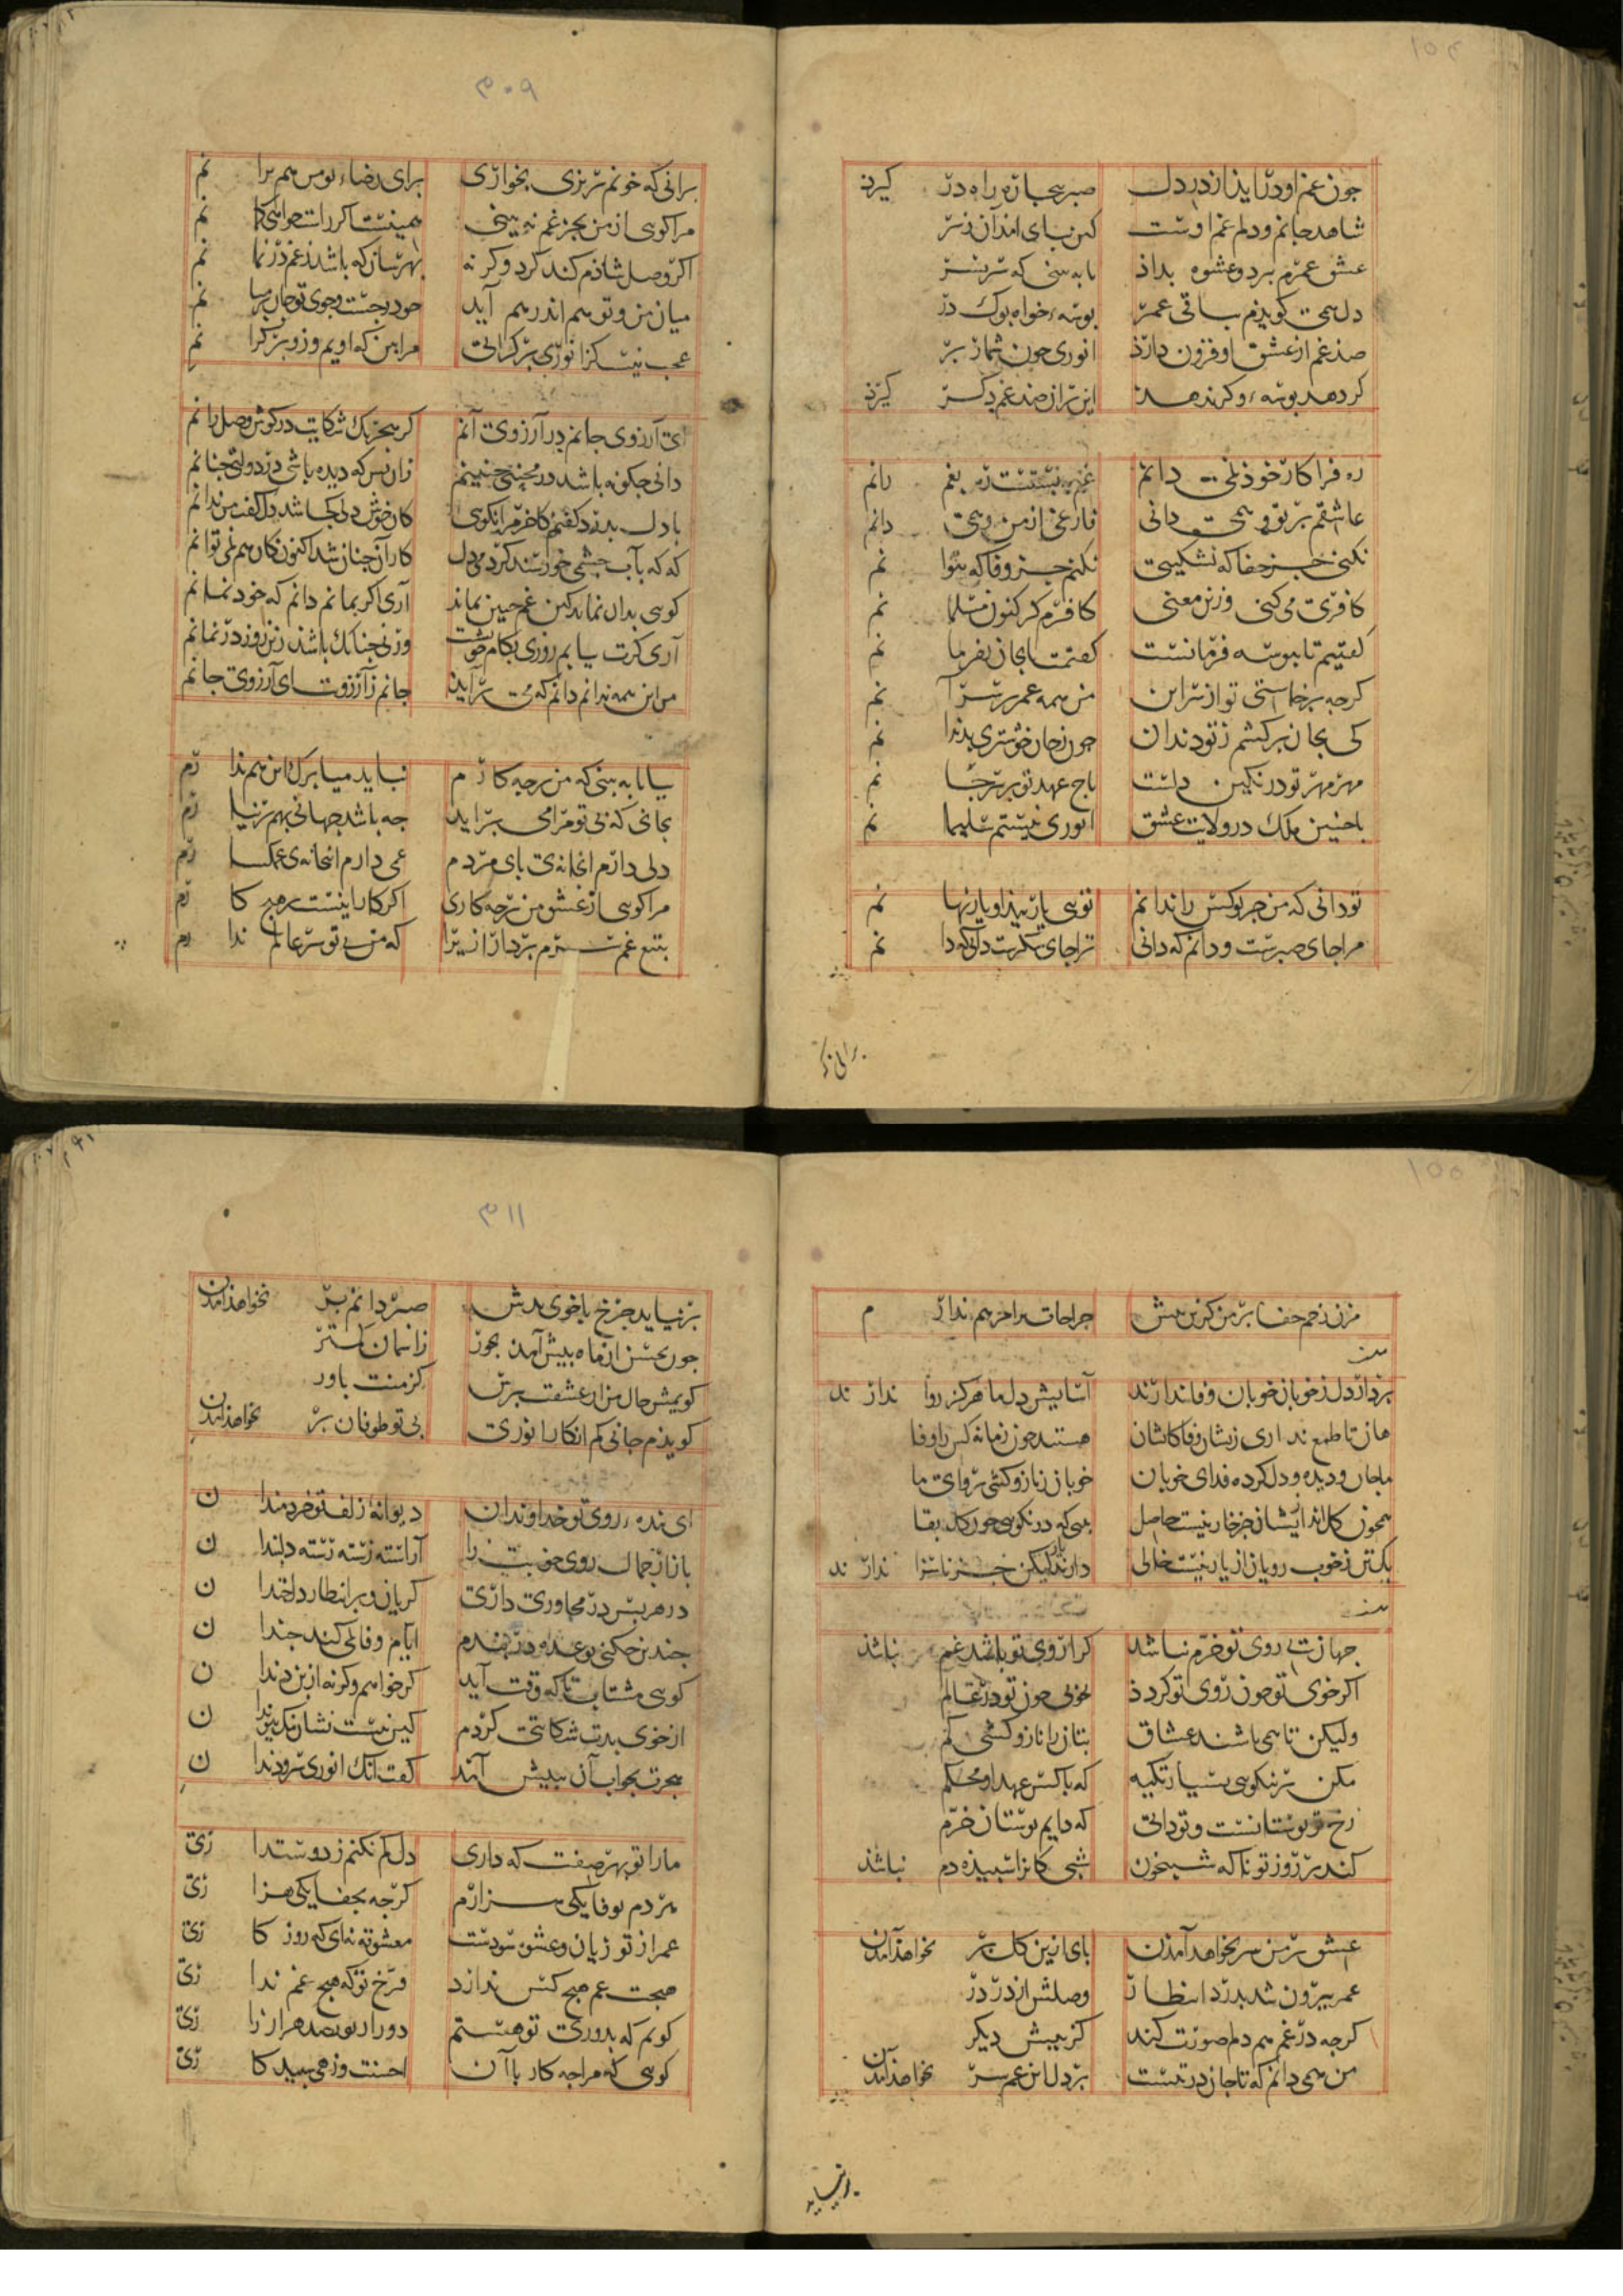 جون غم او در آید از در دل صبر بیجاره راه در کیرد
شاهد جانم و دلم غم اوست کین بپای اندران ز سر
عشق عمرم برد و عشوه بداد تا به بینی که سر بسر
دل همی کویدم بباقی عمر بوسه خواه بوک در
صد غم از عشق او فزون دارد انوری جون شمار بر
کر دهد بوسهٔ وکر ندهد این بران صد غم دکر کیرد
ره فرا کار خود نمی دانم غم تو نیستت زره بغم رانم
عاشقم بر تو و همی دانی فارغی از من و همی دانم
نکنی جز جفا که نشکیبی نکنم جز وفا که نتوا نم
کافری می کنی وزین معنی کافرم کر کنون مسلما نم
کفتیم تا ببوسه فرمانست کفتمت تا بجان بفرما نم
کرجه برخاستی تو از سر این من همه عمر بر سر آ نم
کی بجان برکشم ز تو دندان جون ز جان خوشتری بدندا نم
مهر مهر تو در نکین داست تاج عهد تو بر سر جا نم
با جنین ملک در ولایت عشق انوری نیستم سلیما نم
تو دانی که من جز تو کس را ندانم تویی یار پیدا و یار نها نم
مرا جای صبرست و دانم که دانی ترا جای شکرست دانی که دا نم
برانی که
۳۰۹
برانی که خونم بریزی بخواری برای رضاء تو من هم برا نم
مرا کویی از من بجز غم نه بینی همینست اکر راست خواهی کما نم
اکر وصل شاذم کند کرد وکر نه بهرسان که باشد غم در نما نم
میان من و تو هم اندر هم آید جو در جست و جوی تو جان بر میا نم
عجب نیست کز انوری بر کرانی مرا بین که اویم وزو بر کرا نم
ای آرزوی جانم در آرزوی آنم کز هجر یک شکایت در کوش وصل رانم
دانی جکونه باشد در محنتی جنینم زان پس که دیده باشی در دولتی جنانم
با دل بدرد کفتم کاخر مرا نکوی کان خوش دلی کجا شد دل کفت من ندانم
که که بآب جشمی خورسند کردمی دل کار آن جنان شد اکنون کان هم نمی توانم
کویی بدان نماند کین غم جنین نماند آری اکر بمانم دانم که خود نمانم
آری کرت بیابم روزی بکام خوشت ورنی جنانک باشد زین روز در نمانم
من این همه ندانم دانم که می برآید جانم ز آرزوت ای آرزوی جانم
بیا تا به بینی که من بر جه کارم نیاید میا برک این هم ندا رم
بجانی که بی تو مرا می برآید جه باشد جهانی بهم بر نیا رم
دلی دارم انجا نه ی پای مردم غمی دارم انجا نه ی غمکسا رم
مرا کویی از عشق من بر جه کاری اکر کار اینست بر هیج کا رم
بتیغ غمت سرم بردار ازیرا که من بی تو سر عالم ندا رم
مزن زخم جفا بر من کزین بیش جراحات مرا مرهم ندار م
بردار دل ز خوبان خوبان وفا ندارند آسایش دل ما هرکز روا ندارند
هان تا طمع نداری زیشان وفا کاشان هستند جون زمانه کس را وفا
با جان و دیده و دل کرده فدای خوبان خوبان ز ناز و کشی پروای ما
همجون کل اند ازیشان جز خار نیست حاصل هی که در نکویی جون کل بقا
یک تن ز خوب رویان از یار نیست خالی دارند یار لیکن جز ناسزا ندارند
جهان بی روی تو خرم نباشد کرا روی تو باشد غم نباشد
اکر خوی تو جون روی تو کردد بخوبی جون تو در عالم
ولیکن تا همی باشند عشاق بتان را ناز و کشی کم
مکن بر نیکویی بسیار تکیه که با کس عهد او محکم
رخ تو بوستانست و تو دانی که دایم بوستان خرم
کند بر روز تو ناکه شبیخون شبی کانرا سپیده دم نباشد
عشق بر من سر نخواهد آمدن پای ازین کل بر نخواهد آمدن
عمر بیرون شد بدرد انتظار وصلش از در در
کرجه در غم هم دلم صورت کند کز پیش دیکر
من همی دانم که تا جان در تنست بر دل این غم سر نخواهد آمدن
برنیاید
۳۱۱
برنیاید جرخ با خوی بدش صبر دانم بر نخواهد آمدن
جون بحسن از ماه بیش آمد بجور زاسمان کمتر
کویمش جان من از عشقت برست کز منت باور
کویدم جانی کم انکار انوری بی تو طوفان بر نخواهد آمدن
ای بندهٔ روی تو خداوندان دیوانهٔ زلف تو خردمندا ن
بازار جمال روی خوبت را آراسته رسته رسته دلبندا ن
در هر پس در مجاوری داری کریان و بر انتظار دل خندا ن
جندین جکنی بوعده در بندم ایام وفا نمی کند جندا ن
کویی مشتاب تا که وقت آید کر خواهم وکرنه از بن دندا ن
از خوی بدت شکایتی کردم کین نیست نشان نیک پیوندا ن
هجرت بجواب آن پیش آمد کفت انک انوری سر و دندا ن
ما را تو بهر صفت که داری دل کم نکنم ز دوستدا ری
هر دم بوفا یکی هزارم کرجه بجفا یکی هزا ری
عمر از تو زیان و عشق سودست معشوقه نهٔ ای که روز کا ری
هیجت غم هیج کس ندارد فرخ تو که هیج غم ندا ری
کویم که بدوری تو هستم دور از تو بصد هزار زا ری
کویی که مرا جه کار با آن احسنت وزهی سپید کا ری